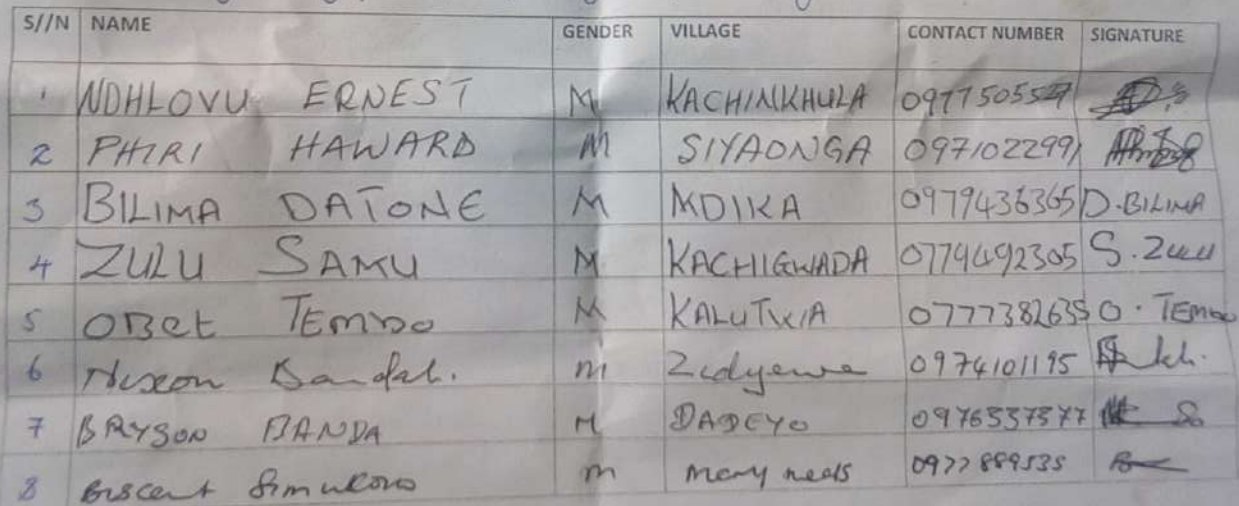 S//N NAME GENDER VILLAGE CONTACT NUMBER SIGNATURE
1 NDHLOVU ERNEST M KACHINKHULA
2 PHIRI HAWARD M SIYAONGA 0971022991
3 BILIMA DATONE M MDIKA 0979436365 D.BILIMA
4 ZULU SAMU M KACHIGWADA 0779492305 S.Zulu
5 OBet TEmbo M KALUTWIA 0777382635 O.TEmbo
6 m 0974101195
7 BRYSON BANDA M DADEYO 0976337377
8 m many 0977889535